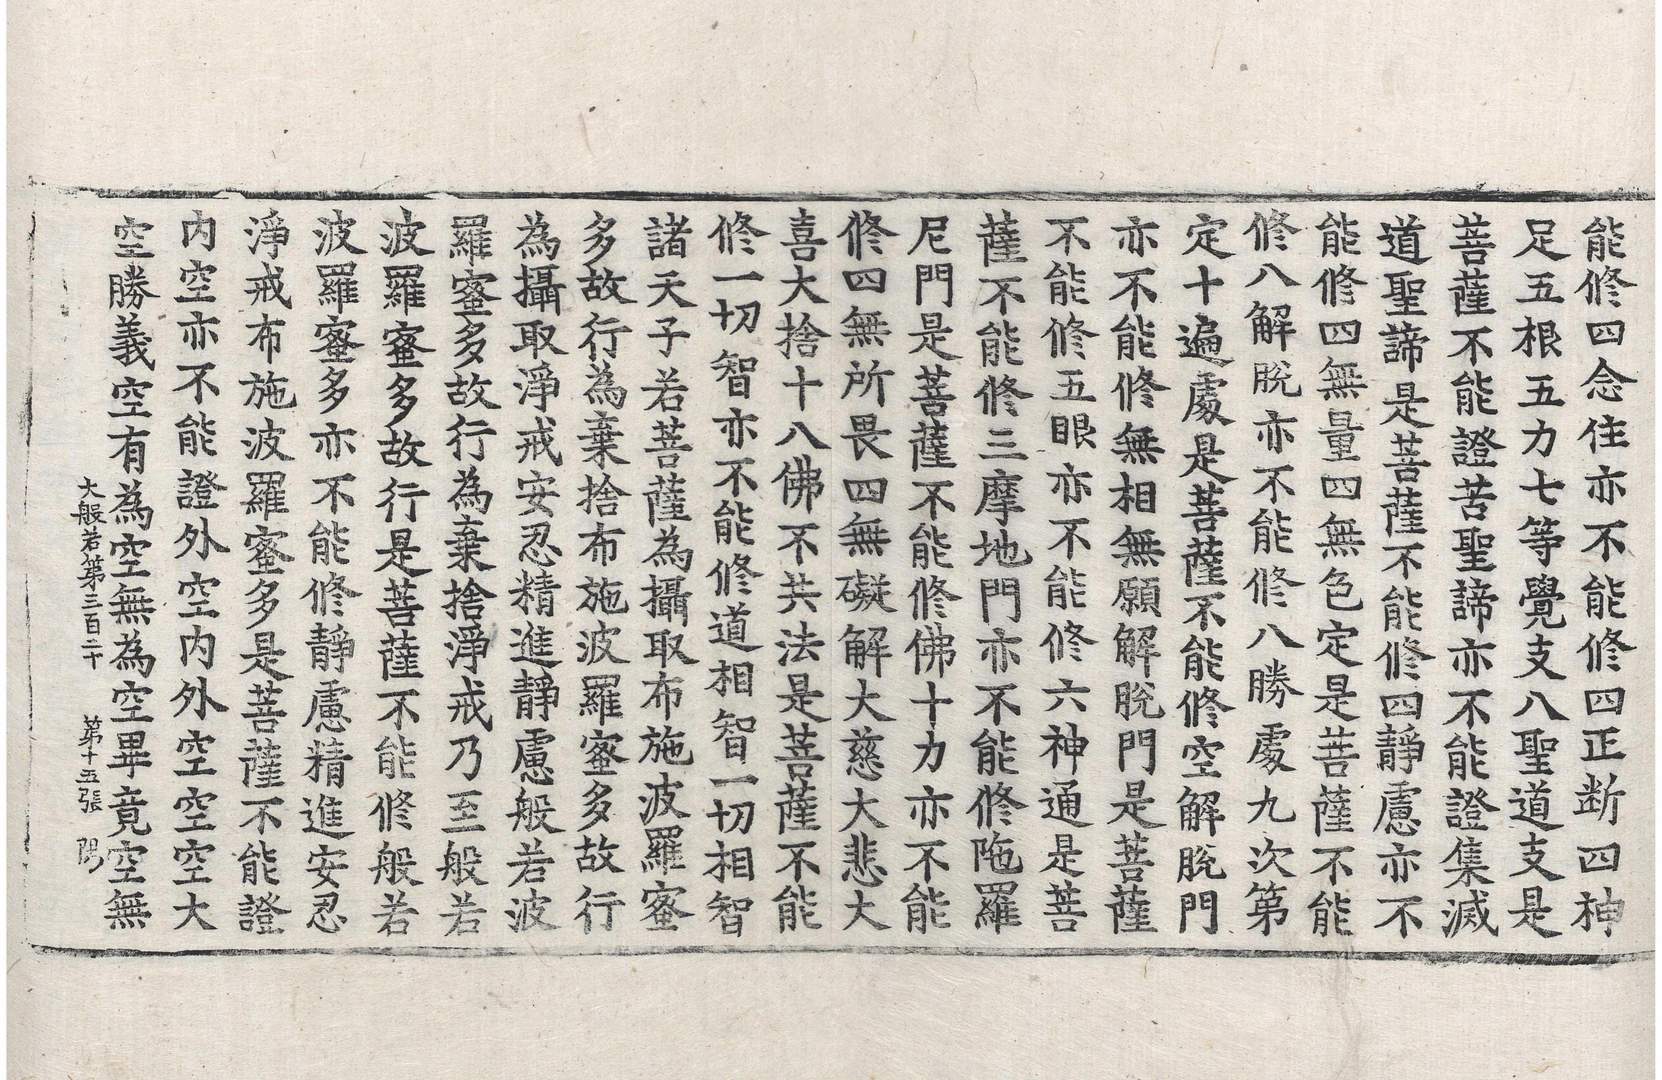 能修四念住亦不能修四正断四神
足五根五力七等覺支八聖道支是
菩薩不能證苦聖諦亦不能證集滅
道聖諦是菩薩不能修四靜慮亦不
能修四無量四無色定是菩薩不能
修八解脫亦不能修八勝處九次第
定十遍處是菩薩不能修空解脫門
亦不能修無相無願解脫門是菩薩
不能修五眼亦不能修六神通是菩
薩不能修三摩地門亦不能修陁羅
尼門是菩薩不能修佛十力亦不能
修四無所畏四無礙解大慈大悲大
喜大捨十八佛不共法是菩薩不能
修一切智亦不能修道相智一切相智
諸天子若菩薩為攝取布施波羅蜜
多故行為棄捨布施波羅蜜多故行
為攝取淨戒安忍精進靜慮般若波
羅蜜多故行為棄捨淨戒乃至般若
波羅蜜多故行是菩薩不能修般若
波羅蜜多亦不能修靜慮精進安忍
淨戒布施波羅蜜多是菩薩不能證
內空亦不能證外空內外空空空大
空勝義空有為空無為空畢竟空無
大般若第三百二十 第十五張 陽